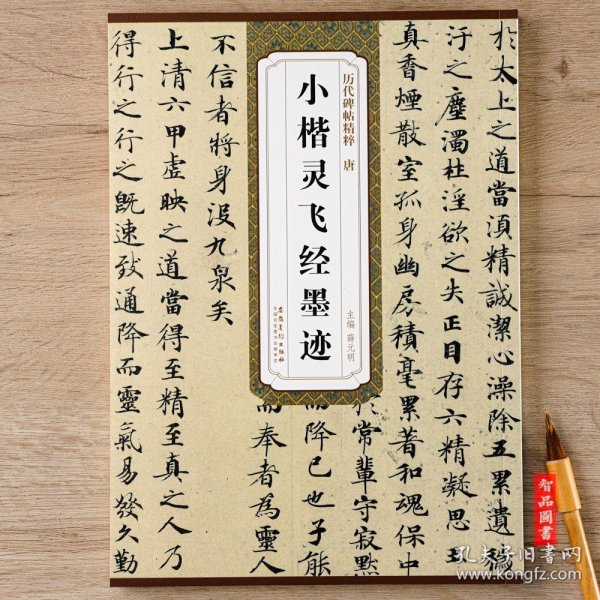 历代碑帖精粹 唐
小楷灵飞经墨迹
主编 薛元明
安徽美术出版社
於太上之道當湏精誠潔心澡除五累遺穢
汙之塵濁杜淫欲之失正目存六精凝思
真香煙散室孤身幽房積毫累著和魂保中
於常輩守寂默
而降已也子能
而奉者為靈人
不信者將身没九泉矣
上清六甲虚映之道當得至精至真之人乃
得行之行之既速致通降而靈氣易發久勤
智品圖書
孔夫子旧书网
www.kongfz.com